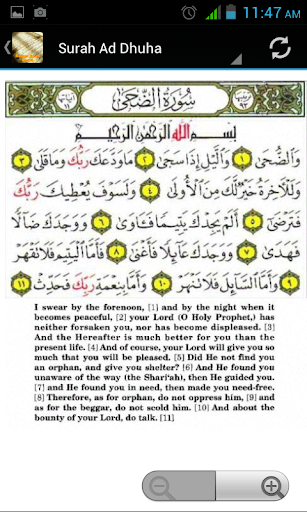 11:47 AM
Surah Ad Dhuha
سُورَةُ الضُّحَىٰ
بِسْمِ اللَّهِ الرَّحْمَٰنِ الرَّحِيمِ
وَالضُّحَىٰ ١ وَاللَّيْلِ إِذَا سَجَىٰ ٢ مَا وَدَّعَكَ رَبُّكَ وَمَا قَلَىٰ ٣
وَلَلْآخِرَةُ خَيْرٌ لَّكَ مِنَ الْأُولَىٰ ٤ وَلَسَوْفَ يُعْطِيكَ رَبُّكَ
فَتَرْضَىٰ ٥ أَلَمْ يَجِدْكَ يَتِيمًا فَآوَىٰ ٦ وَوَجَدَكَ ضَالًّا
فَهَدَىٰ ٧ وَوَجَدَكَ عَائِلًا فَأَغْنَىٰ ٨ فَأَمَّا الْيَتِيمَ فَلَا تَقْهَرْ
٩ وَأَمَّا السَّائِلَ فَلَا تَنْهَرْ ١٠ وَأَمَّا بِنِعْمَةِ رَبِّكَ فَحَدِّثْ ١١
I swear by the forenoon, [1] and by the night when it
becomes peaceful, [2] your Lord (O Holy Prophet,) has
neither forsaken you, nor has become displeased. [3]
And the Hereafter is much better for you than the
present life. [4] And of course, your Lord will give you so
much that you will be pleased. [5] Did He not find you
an orphan, and give you shelter? [6] And He found you
unaware of the way (the Shari'ah), then He guided you.
[7] and He found you in need, then made you need-free.
[8] Therefore, as for orphan, do not oppress him, [9] and
as for the beggar, do not scold him. [10] And about the
bounty of your Lord, do talk. [11]